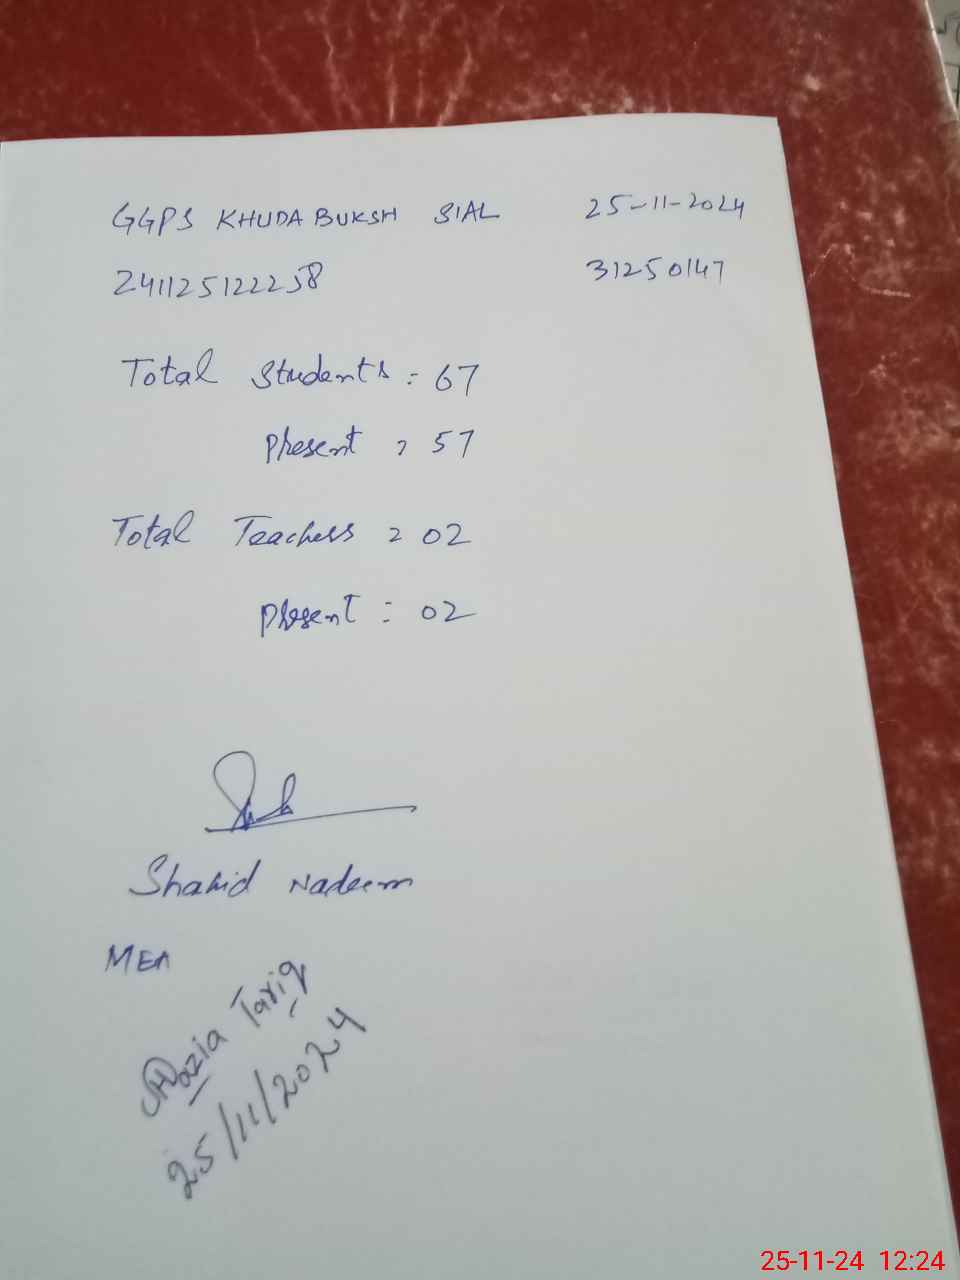 GGPS KHUDA BUKSH SIAL 25-11-2024
241125122258 31250147
Total Students : 67
Present : 57
Total Teachers : 02
Present : 02
Shahid Nadeem
MEA
Tariq
25/11/2024
25-11-24 12:24